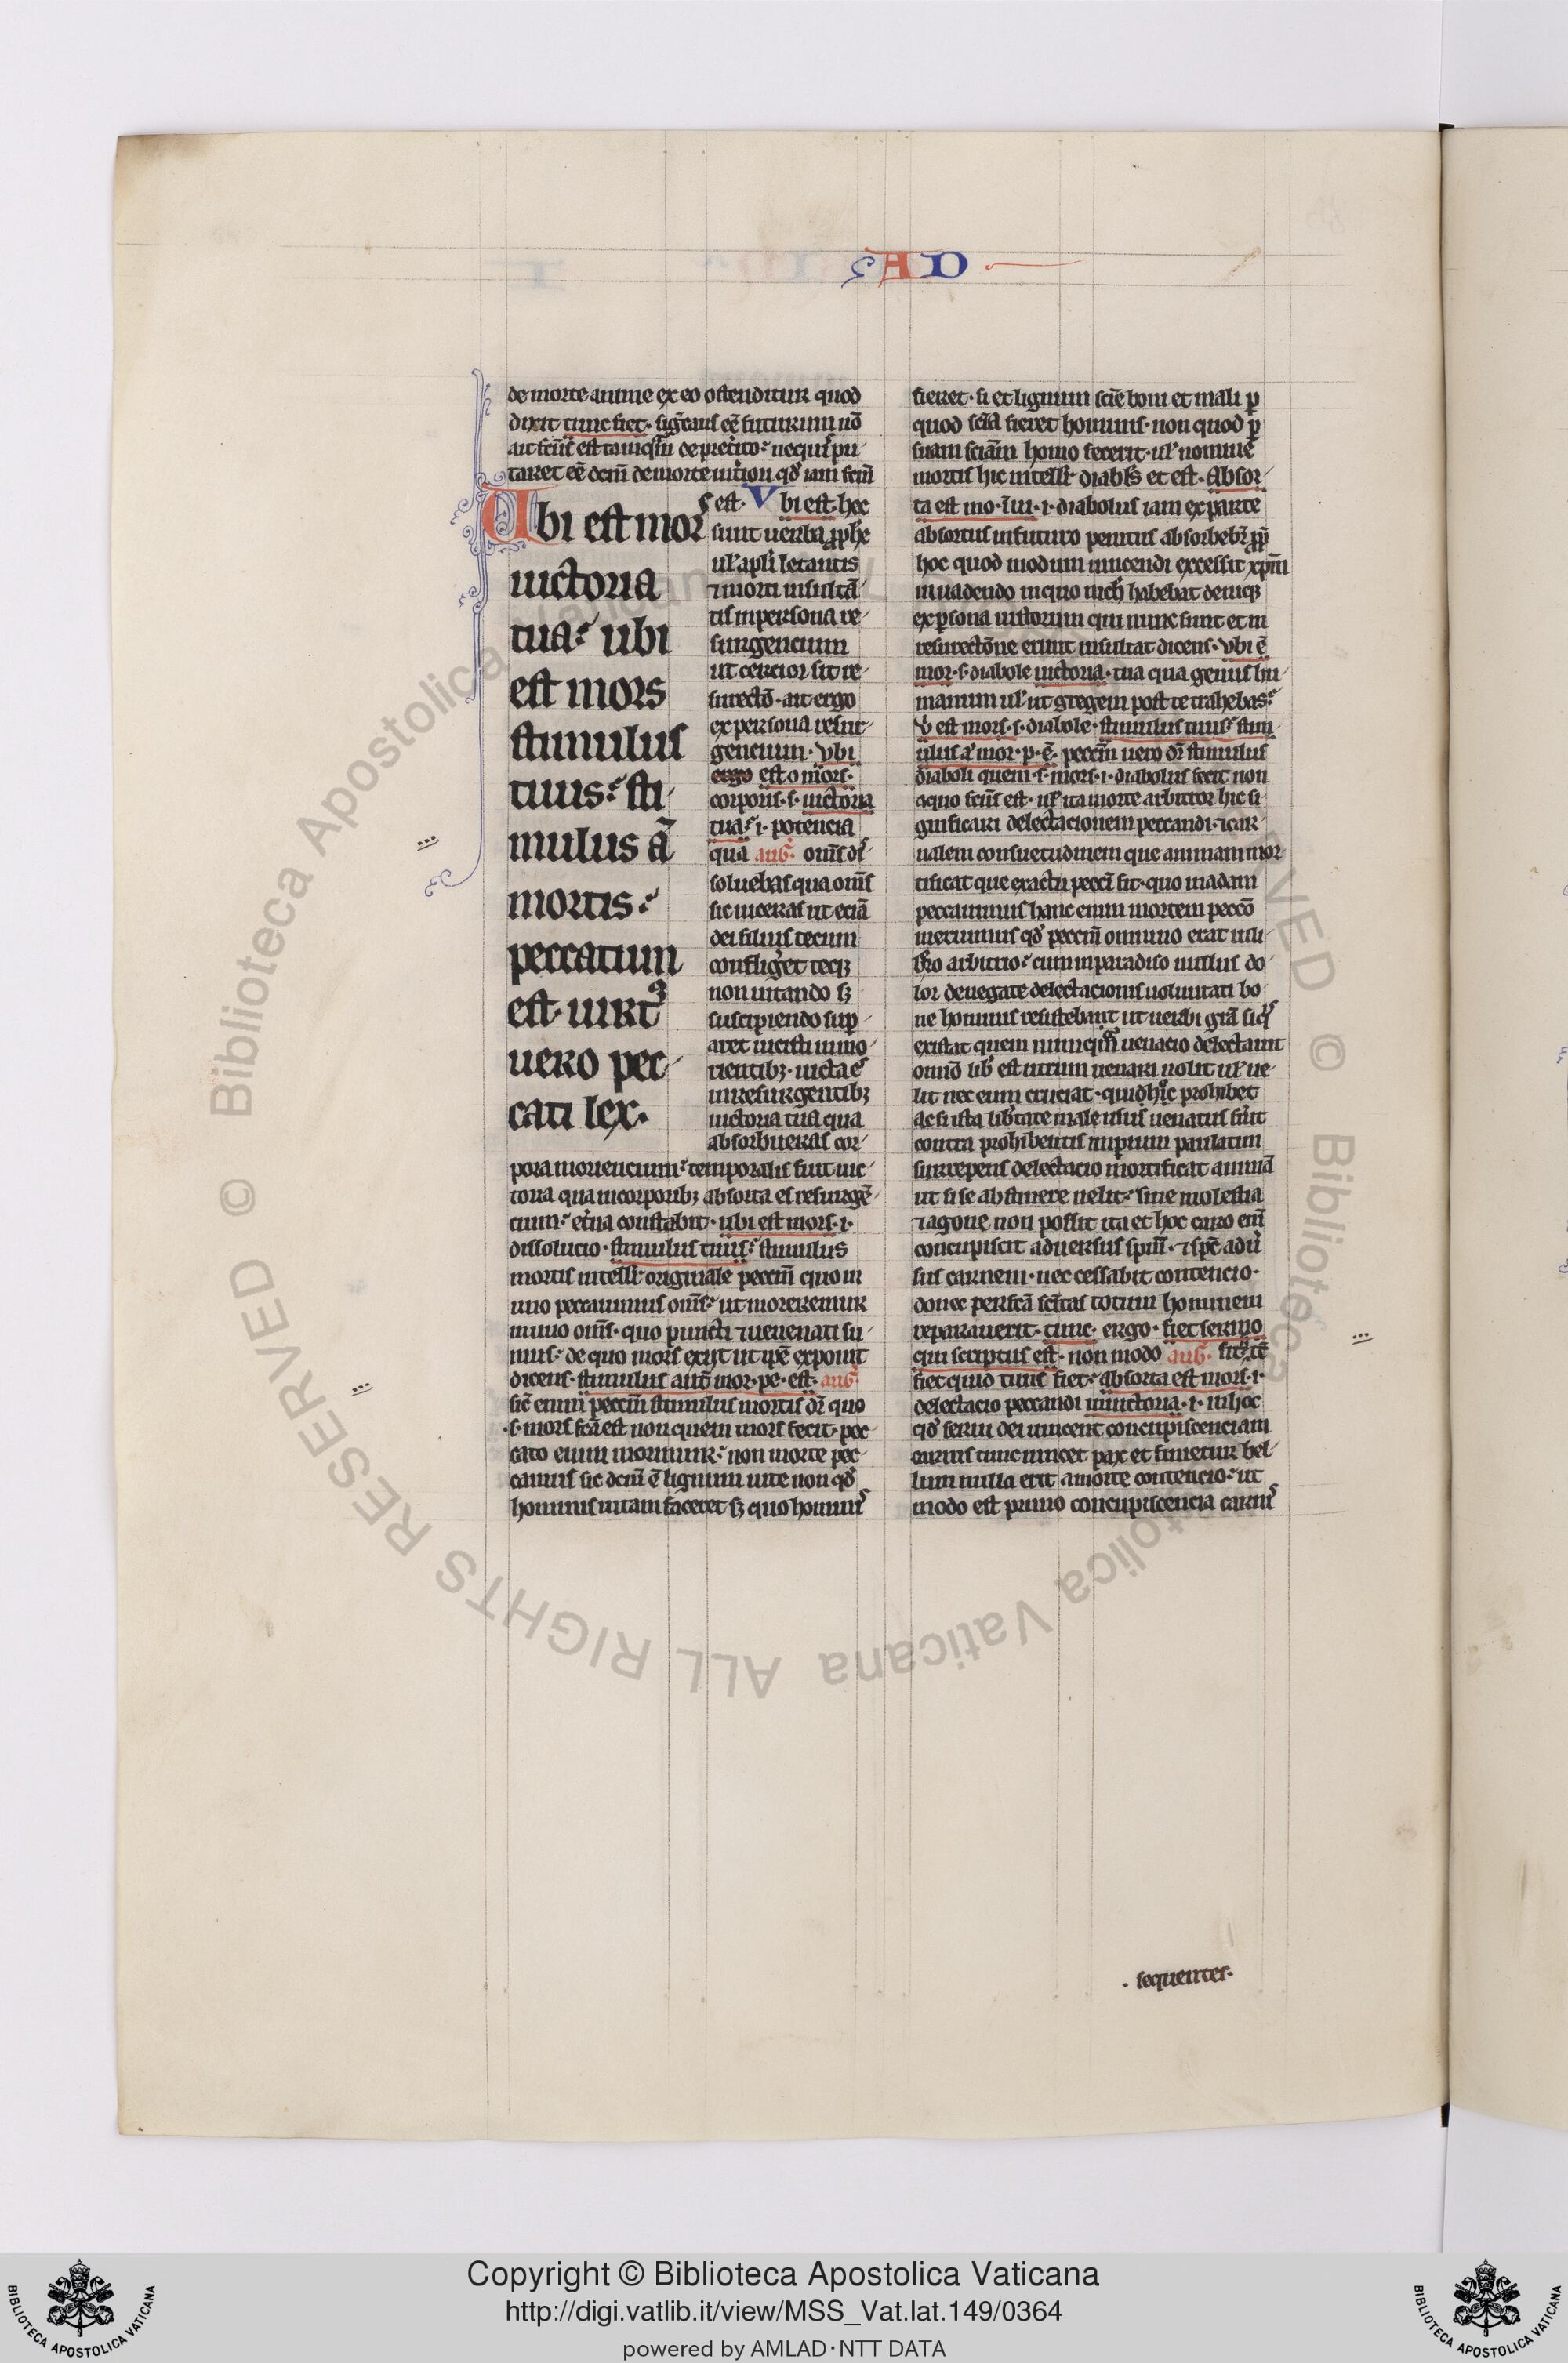 AD
de morte anime ex eo ostenditur quod
dixit tunc fiet. sig̃cans eẽ futurum nõ
ait fc̃m est tanq̃m de preterito nequis pu-
taret eẽ dcm̃ de morte interiori qđ iam fcm̃
Ubi est mors
uictoria
tua? ubi
est mors
stimulus
tuus? sti-
mulus ã
mortis?
peccatum
est. uirtꝰ
uero pec-
cati lex.
est. Vbi est. hec
sunt uerba ꝓphe
ul' apl'i letantis
⁊ morti insultã-
tis in persona re-
surgencium
ut cercior sit re-
surectõ. ait ergo
ex persona resur-
gencium. vbi
ergo est o mors.
corporis. s. uictoria
tua? i. potencia
qua aug̃. om̃s di-
soluebas qua om̃s
sic uiceras ut eciã
dei filius tecum
confliget teqꝫ
non uitando sꝫ
suscipiendo sup-
aret uicisti in mo-
rientibꝫ. uicta es
in resurgentibꝫ
uictoria tua qua
absorbueras cor-
pora moriencium? temporalis fuit uic-
toria qua in corporibꝫ absorta es resurgẽ-
cium? etña constabit. ubi est mors. i.
dissolucio. stimulus tuus? stimulus
mortis intelli' originale peccm̃ quo in
uno peccauimus om̃s? ut moreremur
in uno om̃s. quo puncti ⁊ uenenati su-
mus. de quo mors exijt ut ipẽ exponit
dicens. stimulus autẽ mor. pe. est. aug̃.
sic̃ enim peccm̃ stimulus mortis dr̃ quo
.s. mors fc̃a est non quem mors fecit. pec-
cato enim morimur? non morte pec-
camus sic dcm̃ ẽ lignum uite non qđ
hominis uitam faceret sꝫ quo hominis
fieret. si et lignum sciẽ boni et mali p
quod scĩa fieret hominis. non quod p
suam sciãm homo fecerit. ul' nomine
mortis hic intelli' diabl's et est. Absor-
ta est mo. ĩ ui. i. diabolus iam ex parte
absortus in futuro penitus absorbebr̃ ꝓp̃
hoc quod modum uincendi excessit xpm̃
inuadendo in quo nich' habebat deniqꝫ
ex persona iustorum qui nunc sunt et in
resurectõne erunt insultat dicens. vbi ẽ
mor. s. diabole uictoria. tua qua genus hu-
manum ul' ut gregem post te trahebas?
v est mors. s. diabole. stimulus tuus? stim-
ulus ã mor. p. ẽ. peccm̃ uero dr̃ stimulus
diaboli quem. s. mors. i. diabolus fecit non
a quo fcũs est. ul' ita morte arbitror hic si-
gnificari delectacionem peccandi. ⁊ car-
nalem consuetudinem que animam mor-
tificat que ex actu pecci fit. quo in adam
peccauimus hanc enim mortem peccõ
metuimus qđ peccm̃ omnino erat in li-
b'ro arbitrio? cum in paradiso nullus do-
lor denegate delectacionis uoluntati bo-
ne hominis resistebant ut uerbi grã siqs
existat quem nunqm̃ uenacio delectauit
omnõ lib' est utrum uenari uolit ul' ue-
lit nec eum cruciat. qui dhic prohibet
ac si ista lib'tate male usus uenatus fu'it
contra prohibentis imperium paulatim
surrepens delectacio mortificat animã
ut si se abstinere uelit? sine molestia
⁊ agone non possit ita et hoc caro em̃
concupiscit aduersus spm̃. ⁊ spc̃ adu'
sus carnem. nec cessabit contencio.
donec perfcã scĩtas totum hominem
reparauerit. tunc. ergo. fiet sermo
qui scriptus est. non modo aug̃.
fiet quid tunc fiet? absorta est mors. i.
delectacio peccandi in uictoria. i. in hoc
qđ serui dei uincent concupiscenciam
carnis tunc uincet pax et finietur bel-
lum nulla erit a morte contencio? ut
modo est primo concupiscencia carnis
. sequentes.
Copyright © Biblioteca Apostolica Vaticana
http://digi.vatlib.it/view/MSS_Vat.lat.149/0364
powered by AMLAD · NTT DATA
BIBLIOTECA APOSTOLICA VATICANA
BIBLIOTECA APOSTOLICA VATICANA
© Biblioteca Apostolica Vaticana ALL RIGHTS RESERVED